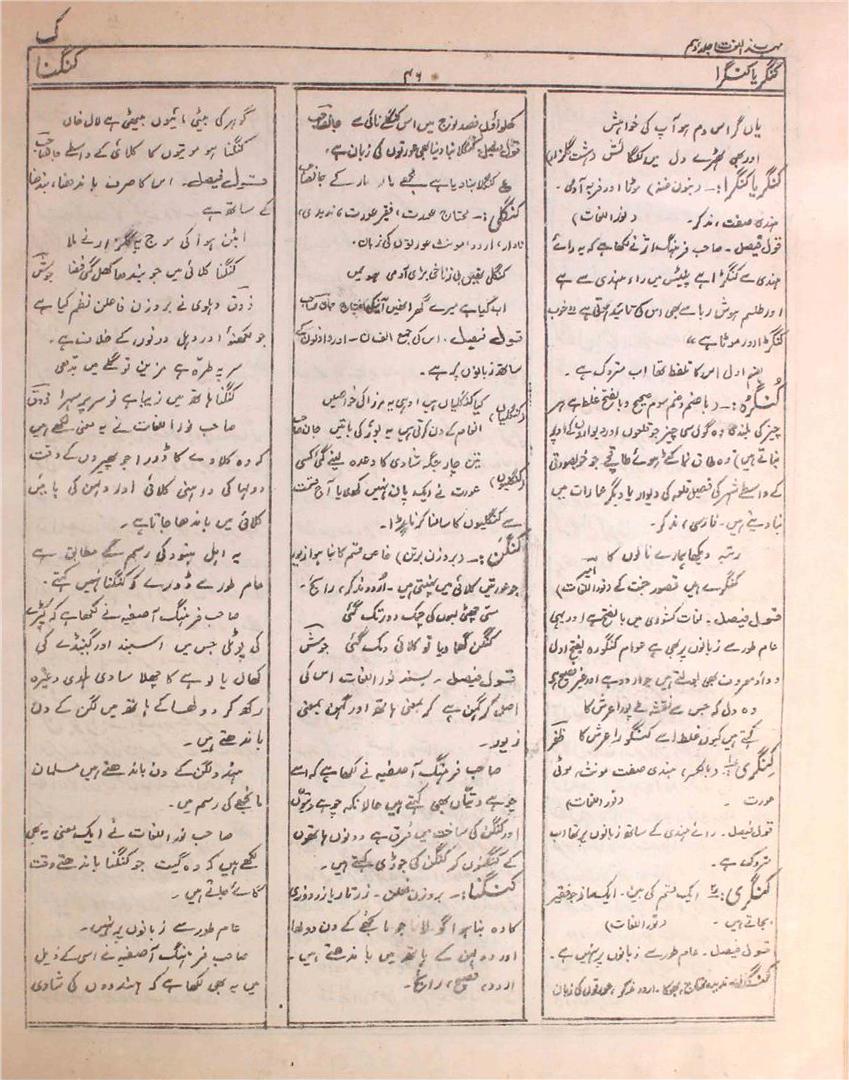 ک
مہذب اللغات جلد دہم
کنگر یا کنگرا
۴۶
کنگنا
یاں گر اس دم ہو آپ کی خواہش
اور بھی بھڑکے دل میں کنگائش
کنگر یا کنگرا:۔ (بنون غنہ) موٹا اور فربہ آدمی۔
ہندی صفت، مذکر۔ (نور اللغات)
قول فیصل۔ صاحب فرہنگ اثر نے لکھا ہے کہ یہ رائے
ہندی سے کنگڑا ہے پلیٹس میں راء ہندی سے ہے
اور طلسم ہوش ربا سے بھی اس کی تائید ہوتی ہے "خوب
کنگڑا اور موٹا ہے"
بضم اول اس کا تلفظ تھا اب متروک ہے۔
کُنگُرہ:۔ (باضم و ضم سوم صحیح و بالفتح غلط ہے ہر
چیز کی بلندی وہ گول سی چیز جو قلعوں اور دیواروں کے اوپر
بناتے ہیں) وہ طاق نما کٹے ہوئے طاقچے جو خوبصورتی
کے واسطے شہر کی فصیل قلعہ کی دیوار یا دیگر عمارات میں
بنا دیتے ہیں۔ فارسی، مذکر۔
رتبہ دیکھا ہمارے نالوں کا
کنگرے ہیں قصور جنت کے (نور اللغات) امیر
قول فیصل۔ لغات کشوری میں بالفتح ہے اور یہی
عام طور سے زبانوں پر بھی ہے عوام کنگورہ بفتح اول
و واو معروف بھی بولتے ہیں جو اردو ہے اور غیر فصیح ہے
وہ دل کہ جس سے نقشہ ہے پورا عرش کا
کہتے ہیں کیوں غلط اسے کنگورا عرش کا ظفر
کنگری:۔ (بالکسر، ہندی صفت مونث، موٹی
عورت۔ (نور اللغات)
قول فیصل۔ رائے ہندی کے ساتھ زبانوں پر تھا اب
متروک ہے۔
کنگری:۔ ایک قسم کی بین۔ ایک ساز جو فقیر
بجاتے ہیں۔ (نور اللغات)
قول فیصل۔ عام طور سے زبانوں پر نہیں ہے۔
محتاج، بھوکا۔ اردو مذکر، عورتوں کی زبان
کھلواؤں فصد لونج میں اس کنگلے نائی سے جانصاحب
قول فیصل۔ کنگلا بنا دینا بھی عورتوں کی زبان ہے۔
ع کنگلا بنا دیا ہے مجھے بار بار کے جانصاحب
کنگلی:۔ محتاج عورت، فقیر عورت، ندیدی،
نادار، اردو مونث عورتوں کی زبان۔
کنگلی تھیں بی زناخی بڑی آدمی ہوئیں
اب گیا ہے میرے گھر انھیں جان صاحب
قول فیصل۔ اس کی جمع الف ن۔ اور واو نون کے
ساتھ زبانوں پر ہے۔
(کنگلیاں) کیا کنگلیاں ہیں اوہی یہ مرزا کی خواصیں
انعام کے دن کرتی ہیں یہ باتیں جان صاحب
تین چار جگہ شادی کا وعدہ لینے گئی کسی
(کنگلیوں) عورت نے ایک پان نہیں کھلایا آج سخت
سے کنگلیوں کا سامنا کرنا پڑا۔
کنگن:۔ (بروزن برتن) خاص قسم کا بنا ہوا زیور
جو عورتیں کلائی میں پہنتی ہیں۔ اردو مذکر، رائج۔
مستی چھٹی لبوں کی چمک دور تک گئی
کنگن گھما دیا تو کلائی دمک گئی جوش
قول فیصل۔ بسند نور اللغات اس کی
اصل کر گہن ہے کر بمعنی ہاتھ اور گہن بمعنی
زیور۔
صاحب فرہنگ آصفیہ نے لکھا ہے کہ اسے
چوہے دتیاں بھی کہتے ہیں حالانکہ چوہے دتیوں
اور کنگن کی ساخت میں فرق ہے دونوں ہاتھوں
کے کنگنوں کو کنگن کی جوڑی کہتے ہیں۔
کنگنا:۔ بروزن فعلن۔ زرتار یا زردوزی
کا دہ بنا ہوا گولا جو مانجھے کے دن دولھا
اور دولہن کے ہاتھ میں باندھتے ہیں۔
اردو، فصیح، رائج۔
گوہر کی بیٹی مائیوں بیٹھی ہے لال خاں
کنگنا ہو موتیوں کا کلائی کے واسطے جانصاحب
قول فیصل۔ اس کا صرف باندھنا، بندھنا
کے ساتھ ہے
ابٹن ہوا کی موج پہ گلزار نے ملا
کنگنا کلائی میں جو بندھا کھل گئی فضا جوش
ذوق دہلوی نے بروزن فاعلن نظم کیا ہے
جو لکھنؤ اور دہلی دونوں کے خلاف ہے۔
سر پہ طرہ ہے مزین تو گلے میں بدھی
کنگنا ہاتھ میں زیبا ہے تو سر پر سہرا ذوق
صاحب نور اللغات نے یہ معنی لکھے ہیں
کہ وہ کلاوے کا ڈورا جو پھیروں کے وقت
دولہا کی داہنی کلائی اور دولہن کی بائیں
کلائی میں باندھا جاتا ہے۔
یہ اہل ہنود کی رسم کے مطابق ہے
عام طور سے ڈورے کو کنگنا نہیں کہتے۔
صاحب فرہنگ آصفیہ نے لکھا ہے کہ کپڑے
کی پوٹلی جس میں اسپند اور گینڈے کی
کھال یا لوہے کا چھلا سادی ہلدی وغیرہ
رکھ کر دولھا کے ہاتھ میں لگن کے دن
باندھتے ہیں۔
ہندو لگن کے دن باندھتے ہیں مسلمان
مانجھے کی رسم میں۔
صاحب نور اللغات نے ایک معنی یہ بھی
لکھے ہیں کہ وہ گیت جو کنگنا باندھتے وقت
گائے جاتے ہیں۔
عام طور سے زبانوں پر نہیں۔
صاحب فرہنگ آصفیہ نے اسی کے ذیل
میں یہ بھی لکھا ہے کہ ہندووں کی شادی